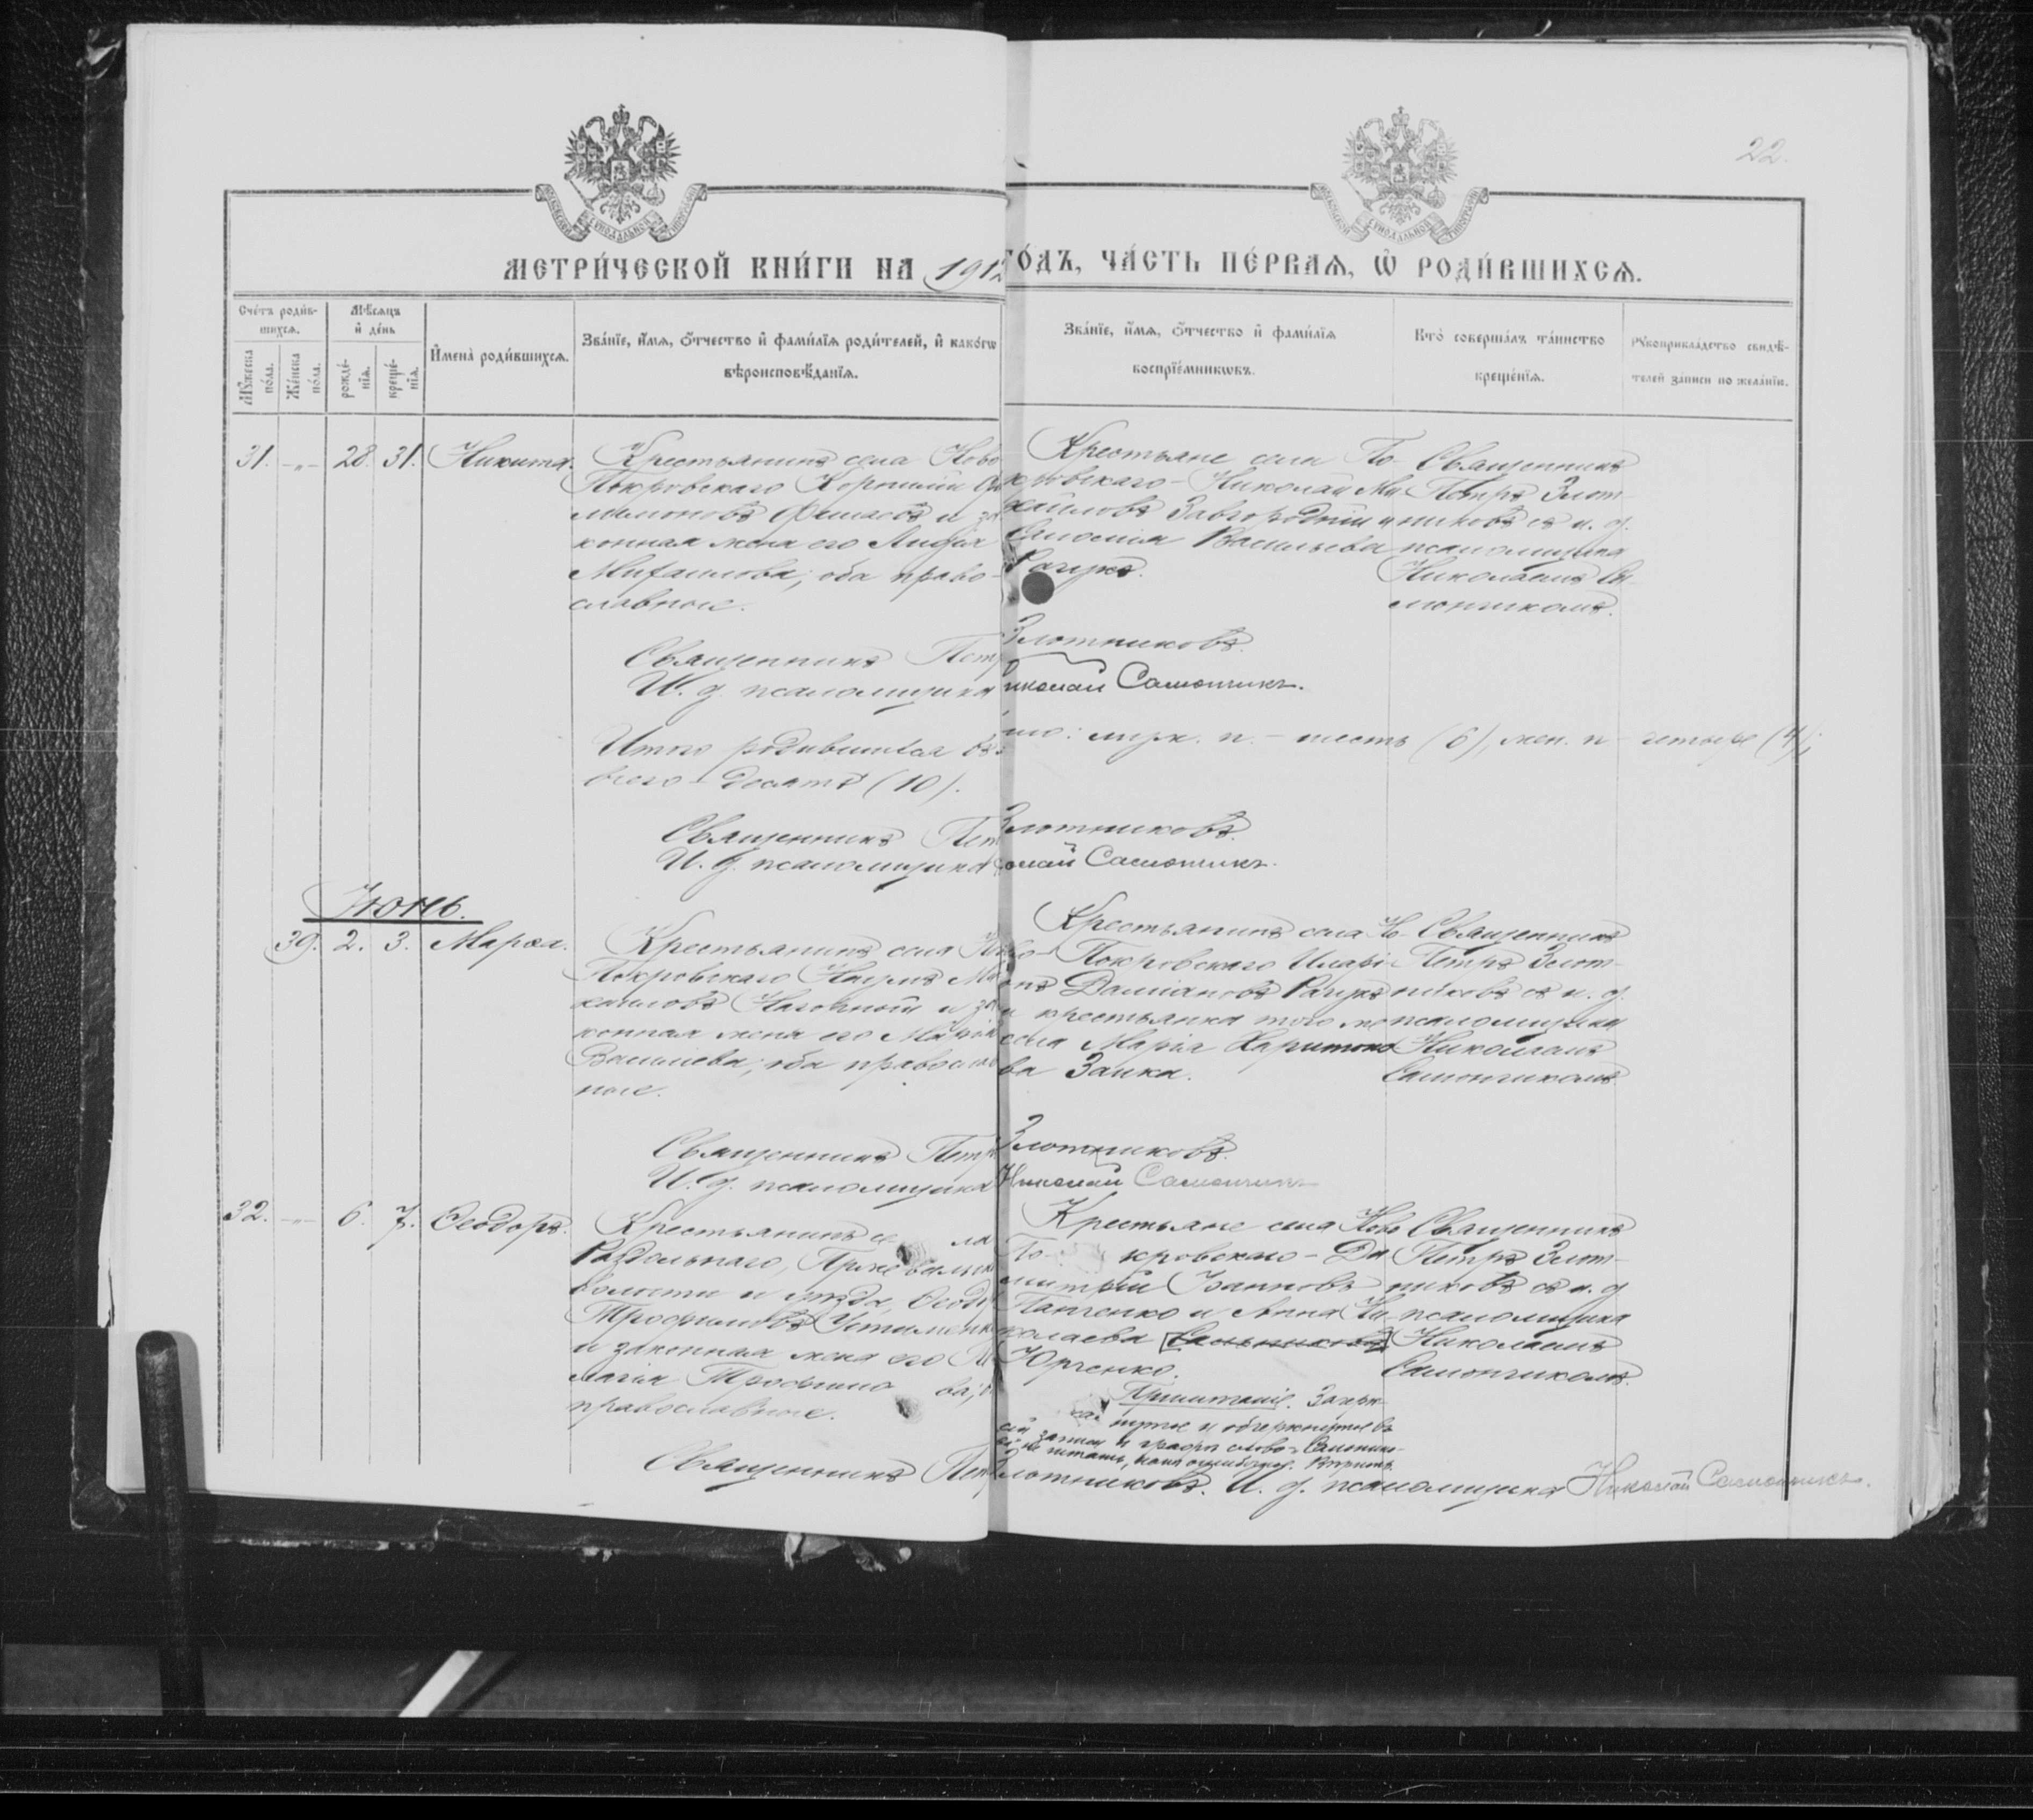 22.
МЕТРИ́ЧЕСКОЙ КНИ́ГИ НА 1912 ГО́ДЪ, ЧА́СТЬ ПЕ́РВАѦ, Ѡ҆ РОДИ́ВШИХСѦ.
Сче́тъ роди́в-
шихсѧ.
Мꙋ́жеска по́ла.
Же́нска по́ла.
Мѣ́сѧцъ и҆ де́нь
рожде́-
нїѧ.
креще́-
нїѧ.
И҆мена̀ роди́вшихсѧ.
Зва́нїе, и҆́мѧ, ѻ҆́тчество и҆ фами́лїѧ роди́телей, и҆ како́гѡ
вѣроисповѣ́данїѧ.
Зва́нїе, и҆́мѧ, ѻ҆́тчество и҆ фами́лїѧ
воспрїе́мникѡвъ.
Кто̀ соверша́лъ та́инство
креще́нїѧ.
Рꙋкоприкла́дство свидѣ́-
телей за́писи по жела́нїю.
31. -„- 28. 31. Никита.
Крестьянинъ села Ново
Покровскаго Корнилій
и за
конная жена его Лидія
Михаилова, оба право-
славные.
Крестьяне села По-
кровскаго - Николай Ми
хаиловъ Завгородній и
Васильева
Рагузъ.
Священникъ
Петръ Злот-
никовъ съ и. д.
псаломщика
Николаемъ Са-
мончикомъ.
Священникъ Петр Злотниковъ.
И. д. псаломщика Николай Самончикъ.
Итого родившихся въ
муж. п. - шесть (6), жен. п - четыре (4);
всего - десять (10).
Священникъ Пет Злотниковъ.
И. д. псаломщика Николай Самончикъ.
Іюнь.
39. 2. 3. Марѳа.
Крестьянинъ села Ново-
Покровскаго Наумъ Ми
хаиловъ Нагорный и за
конная жена его Марія
Васильева, оба православ
ные.
Крестьянинъ села Но-
во-Покровскаго Иларі-
онъ Даміановъ Рагузъ
и крестьянка того же
села Марія Харитоно
ва Заика.
Священникъ
Петръ Злот-
никовъ съ и. д.
псаломщика
Николаемъ
Самончикомъ.
Священникъ Петръ Злотниковъ.
И. д. псаломщика Николай Самончикъ
32. -„- 6. 7. Ѳеодоръ.
Крестьянинъ се ла
Раздольнаго, Пржевальск
волости и уѣзда, Ѳеодоръ
Трофимовъ Устименко
и законная жена его Пе
лагія Трофимо ва,
православные.
Крестьяне села Ново
По- кровскаго - Ди
митрій Іоанновъ
Панченко и Анна Ни-
колаева
Юрченко.
Священникъ
Петръ Злот-
никовъ съ и. д
псаломщика
Николаемъ
Самончикомъ.
Примѣчаніе. Зачерк-
нутое и обчеркнутое въ
сей записи и графѣ слово
не читать, какъ ошибочное.
Священникъ Петръ Злотниковъ. И. д. псаломщика Николай Самончикъ.